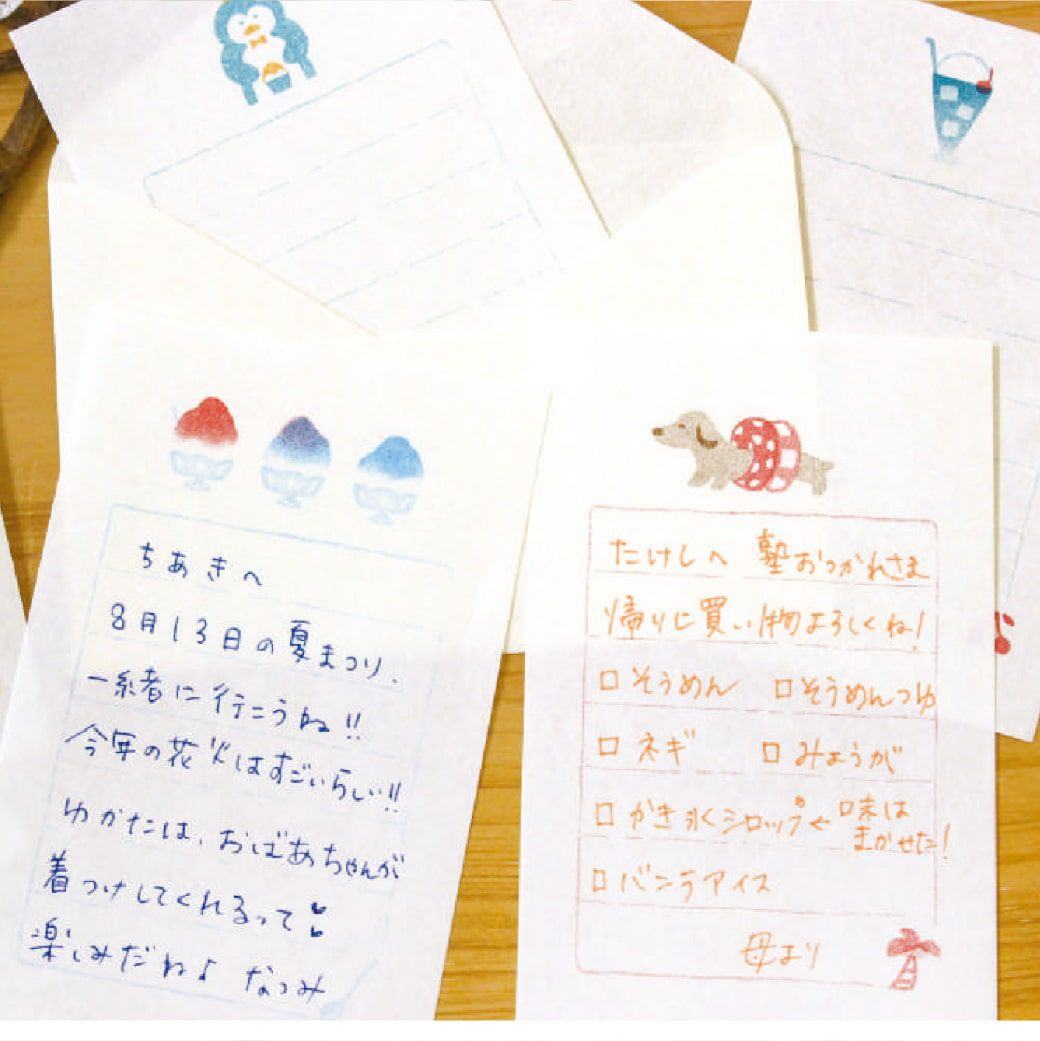 ちあきへ
8月13日の夏まつり、
一緒に行こうね!!
今年の花火はすごいらしい!!
ゆかたは、おばあちゃんが
着つけしてくれるって
楽しみだね♪ なつみ
たけしへ 塾おつかれさま
帰りに買い物よろしくね!
□ そうめん □ そうめんつゆ
□ ネギ □ みょうが
□ かき氷シロップ ← 味は
まかせた!
□ バニラアイス
母より